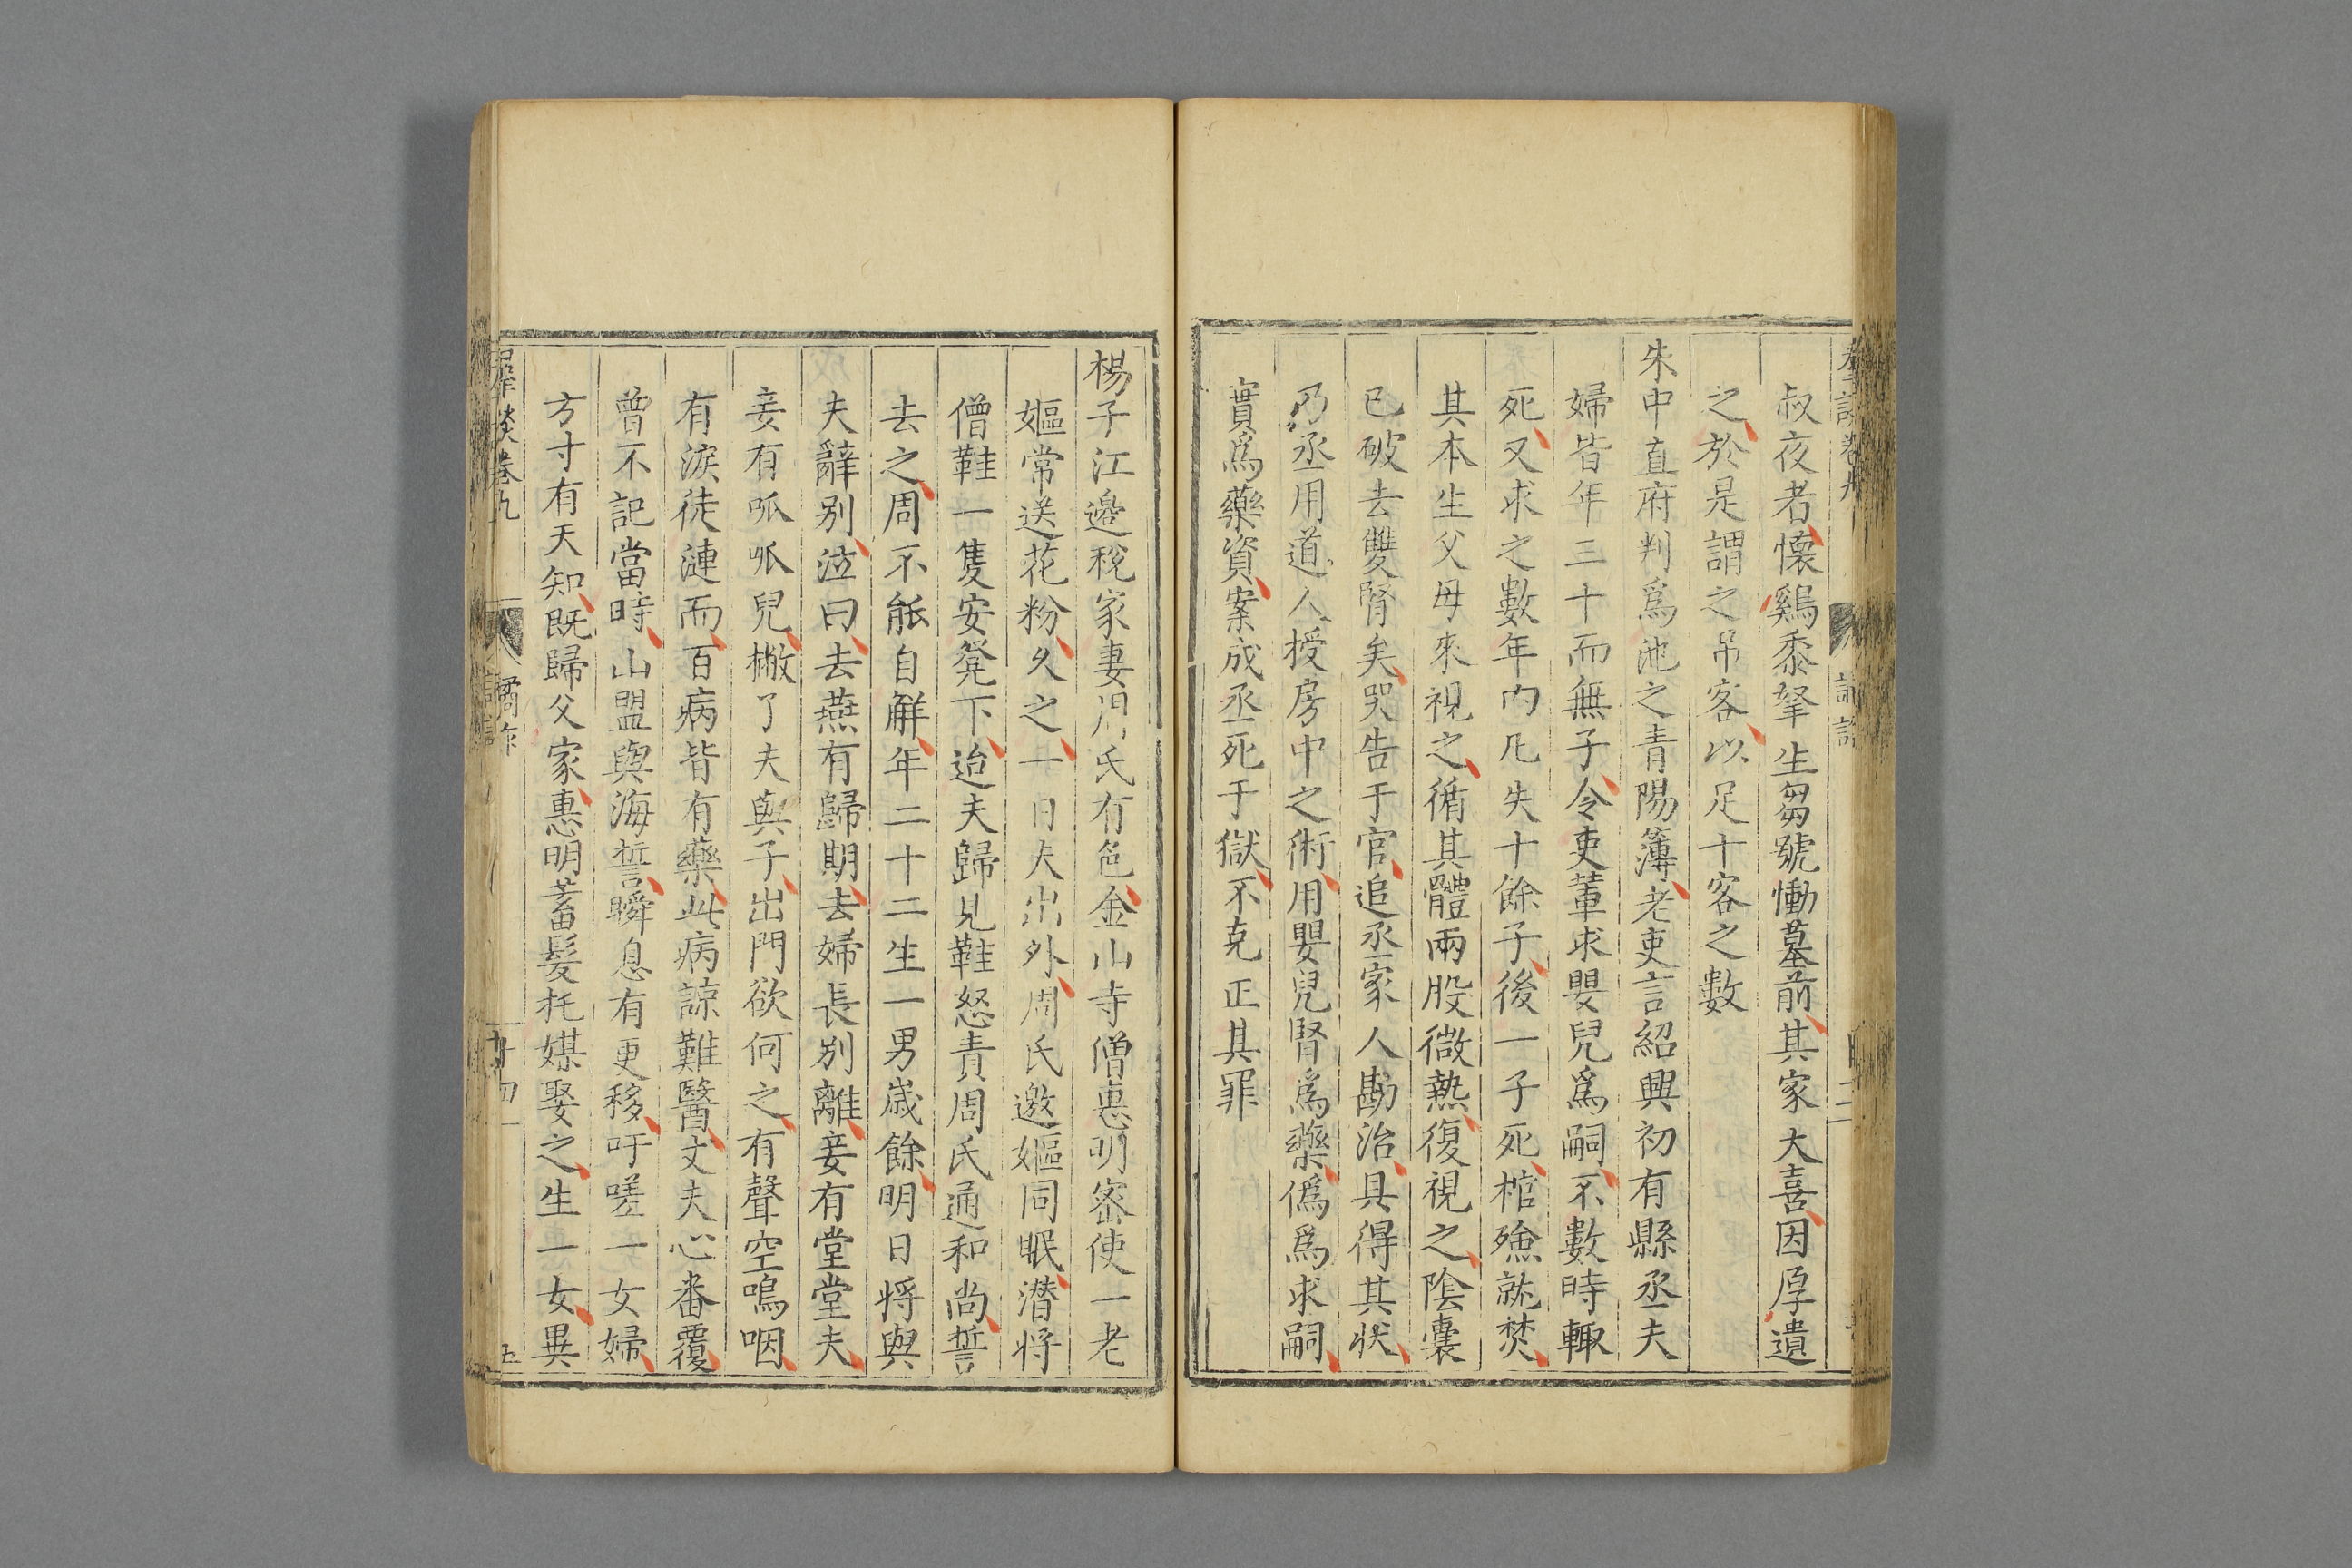 叔夜者懷鷄黍挐生芻號慟墓前其家大喜因厚遺
之於是謂之吊客以足十客之數
朱中直府判爲池之青陽簿老吏言紹興初有縣丞夫
婦皆年三十而無子令吏輩求嬰兒爲嗣不數時輙
死又求之數年內凡失十餘子後一子死棺殮就焚
其本生父母來視之循其體兩股微熱復視之陰囊
已破去雙腎矣哭告于官追丞家人勘治具得其状
乃丞用道人授房中之術用嬰兒腎爲藥僞爲求嗣
實爲藥資案成丞死于獄不克正其罪
楊子江邉稅家妻周氏有色金山寺僧惠明宻使一老
嫗常送花粉久之一日夫出外周氏邀嫗同眠潜将
僧鞋一隻安凳下迨夫歸見鞋怒責周氏通和尚誓
去之周不能自解年二十二生一男歳餘明日将與
夫辭别泣曰去燕有歸期去婦長别離妾有堂堂夫
妾有呱呱兒撇了夫與子出門欲何之有聲空嗚咽
有淚徒漣而百病皆有藥此病諒難醫丈夫心番覆
曽不記當時山盟與海誓瞬息有更移吁嗟一女婦
方寸有天知既歸父家惠明蓄髮托媒娶之生一女異
卷九
五